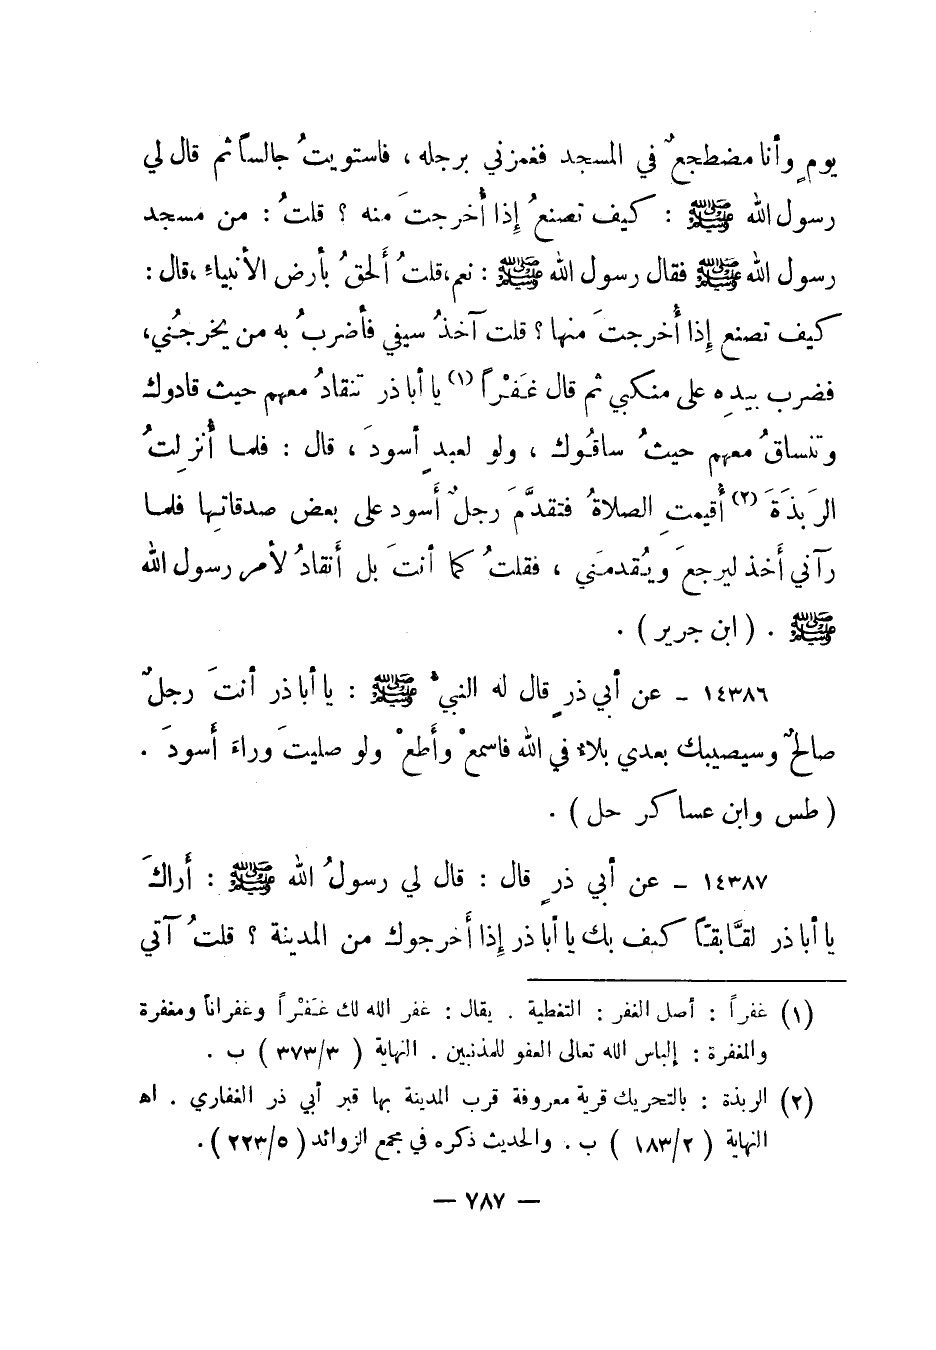 يومٍ وأنا مضطجعٌ في المسجد فغمزني برجله ، فاستويتُ جالساً ثم قال لي
رسول الله ﷺ : كيف تصنعُ إِذا أُخرجتَ منه ؟ قلتُ : من مسجد
رسول الله ﷺ فقال رسول الله ﷺ : نعم ،قلتُ أَلحقُ بأرض الأنبياءِ ،قال :
كيف تصنع إِذا أُخرجتَ منها ؟ قلت آخذُ سيفي فأضربُ به من يخرجُني،
فضرب بيدِه على منكبي ثم قال غَفْراً (١) يا أبا ذر تنقادُ معهم حيث قادوك
وتنساقُ معهم حيثُ ساقُوك ، ولو لعبدٍ أسودَ ، قال : فلما أُنزلتُ
الرَبذَةَ (٢) أُقيمتِ الصلاةُ فتقدَّمَ رجلٌ أَسود على بعض صدقاتِها فلما
رآني أَخذ ليرجعَ ويُقدمَني ، فقلتُ كما أنتَ بل أَنقادُ لأمر رسول الله
ﷺ . ( ابن جرير ) .
١٤٣٨٦ - عن أبي ذرٍ قال له النبيُّ ﷺ : يا أبا ذر أنتَ رجلٌ
صالحٌ وسيصيبك بعدي بلاءٌ في الله فاسمعْ وأَطعْ ولو صليتَ وراءَ أَسودَ .
( طس وابن عساكر حل ) .
١٤٣٨٧ - عن أبي ذرٍ قال : قال لي رسولُ الله ﷺ : أَراكَ
يا أبا ذر لقَّابقاً كيف بك يا أبا ذر إِذا أَخرجوك من المدينة ؟ قلتُ آتي
(١) غفراً : أصل الغفر : التغطية . يقال : غفر الله لك غَفْراً وغفراناً ومغفرة
والمغفرة : إلباس الله تعالى العفو للمذنبين . النهاية ( ٣٧٣/٣ ) ب .
(٢) الربذة : بالتحريك قرية معروفة قرب المدينة بها قبر أبي ذر الغفاري . اه
النهاية ( ١٨٣/٢ ) ب . والحديث ذكره في مجمع الزوائد ( ٢٢٣/٥ ) .
— ٧٨٧ —